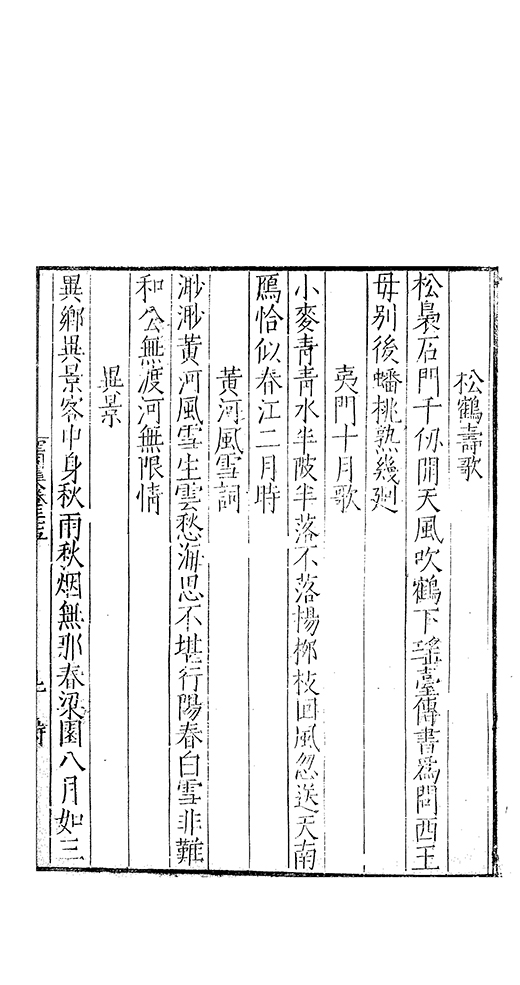 松鶴壽歌
松裊石門千仞開天風吹鶴下瑤臺傳書爲問西王
母別後蟠桃熟幾廻
夷門十月歌
小麥青青水半陂半落不落楊柳枝回風忽送天南
鴈恰似春江二月時
黃河風雪詞
渺渺黃河風雪生雲愁海思不堪行陽春白雪非難
和公無渡河無限情
異景
異鄉異景客中身秋雨秋烟無那春梁園八月如三